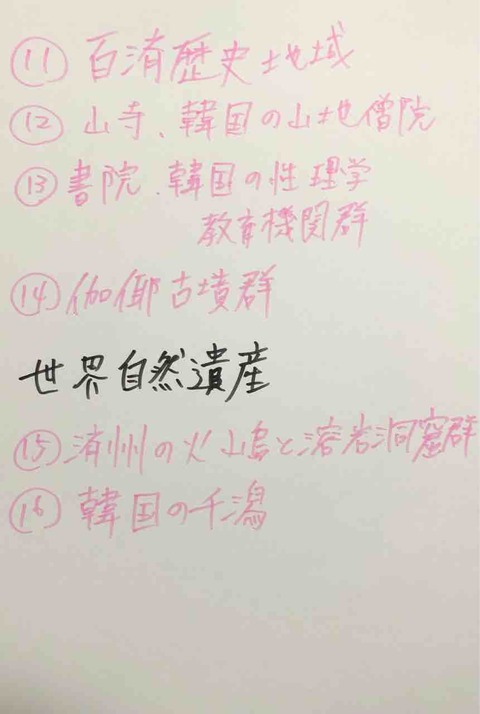 ⑪ 百済歴史地域
⑫ 山寺、韓国の山地僧院
⑬ 書院、韓国の性理学
教育機関群
⑭ 伽倻古墳群
世界自然遺産
⑮ 済州の火山島と溶岩洞窟群
⑯ 韓国の干潟